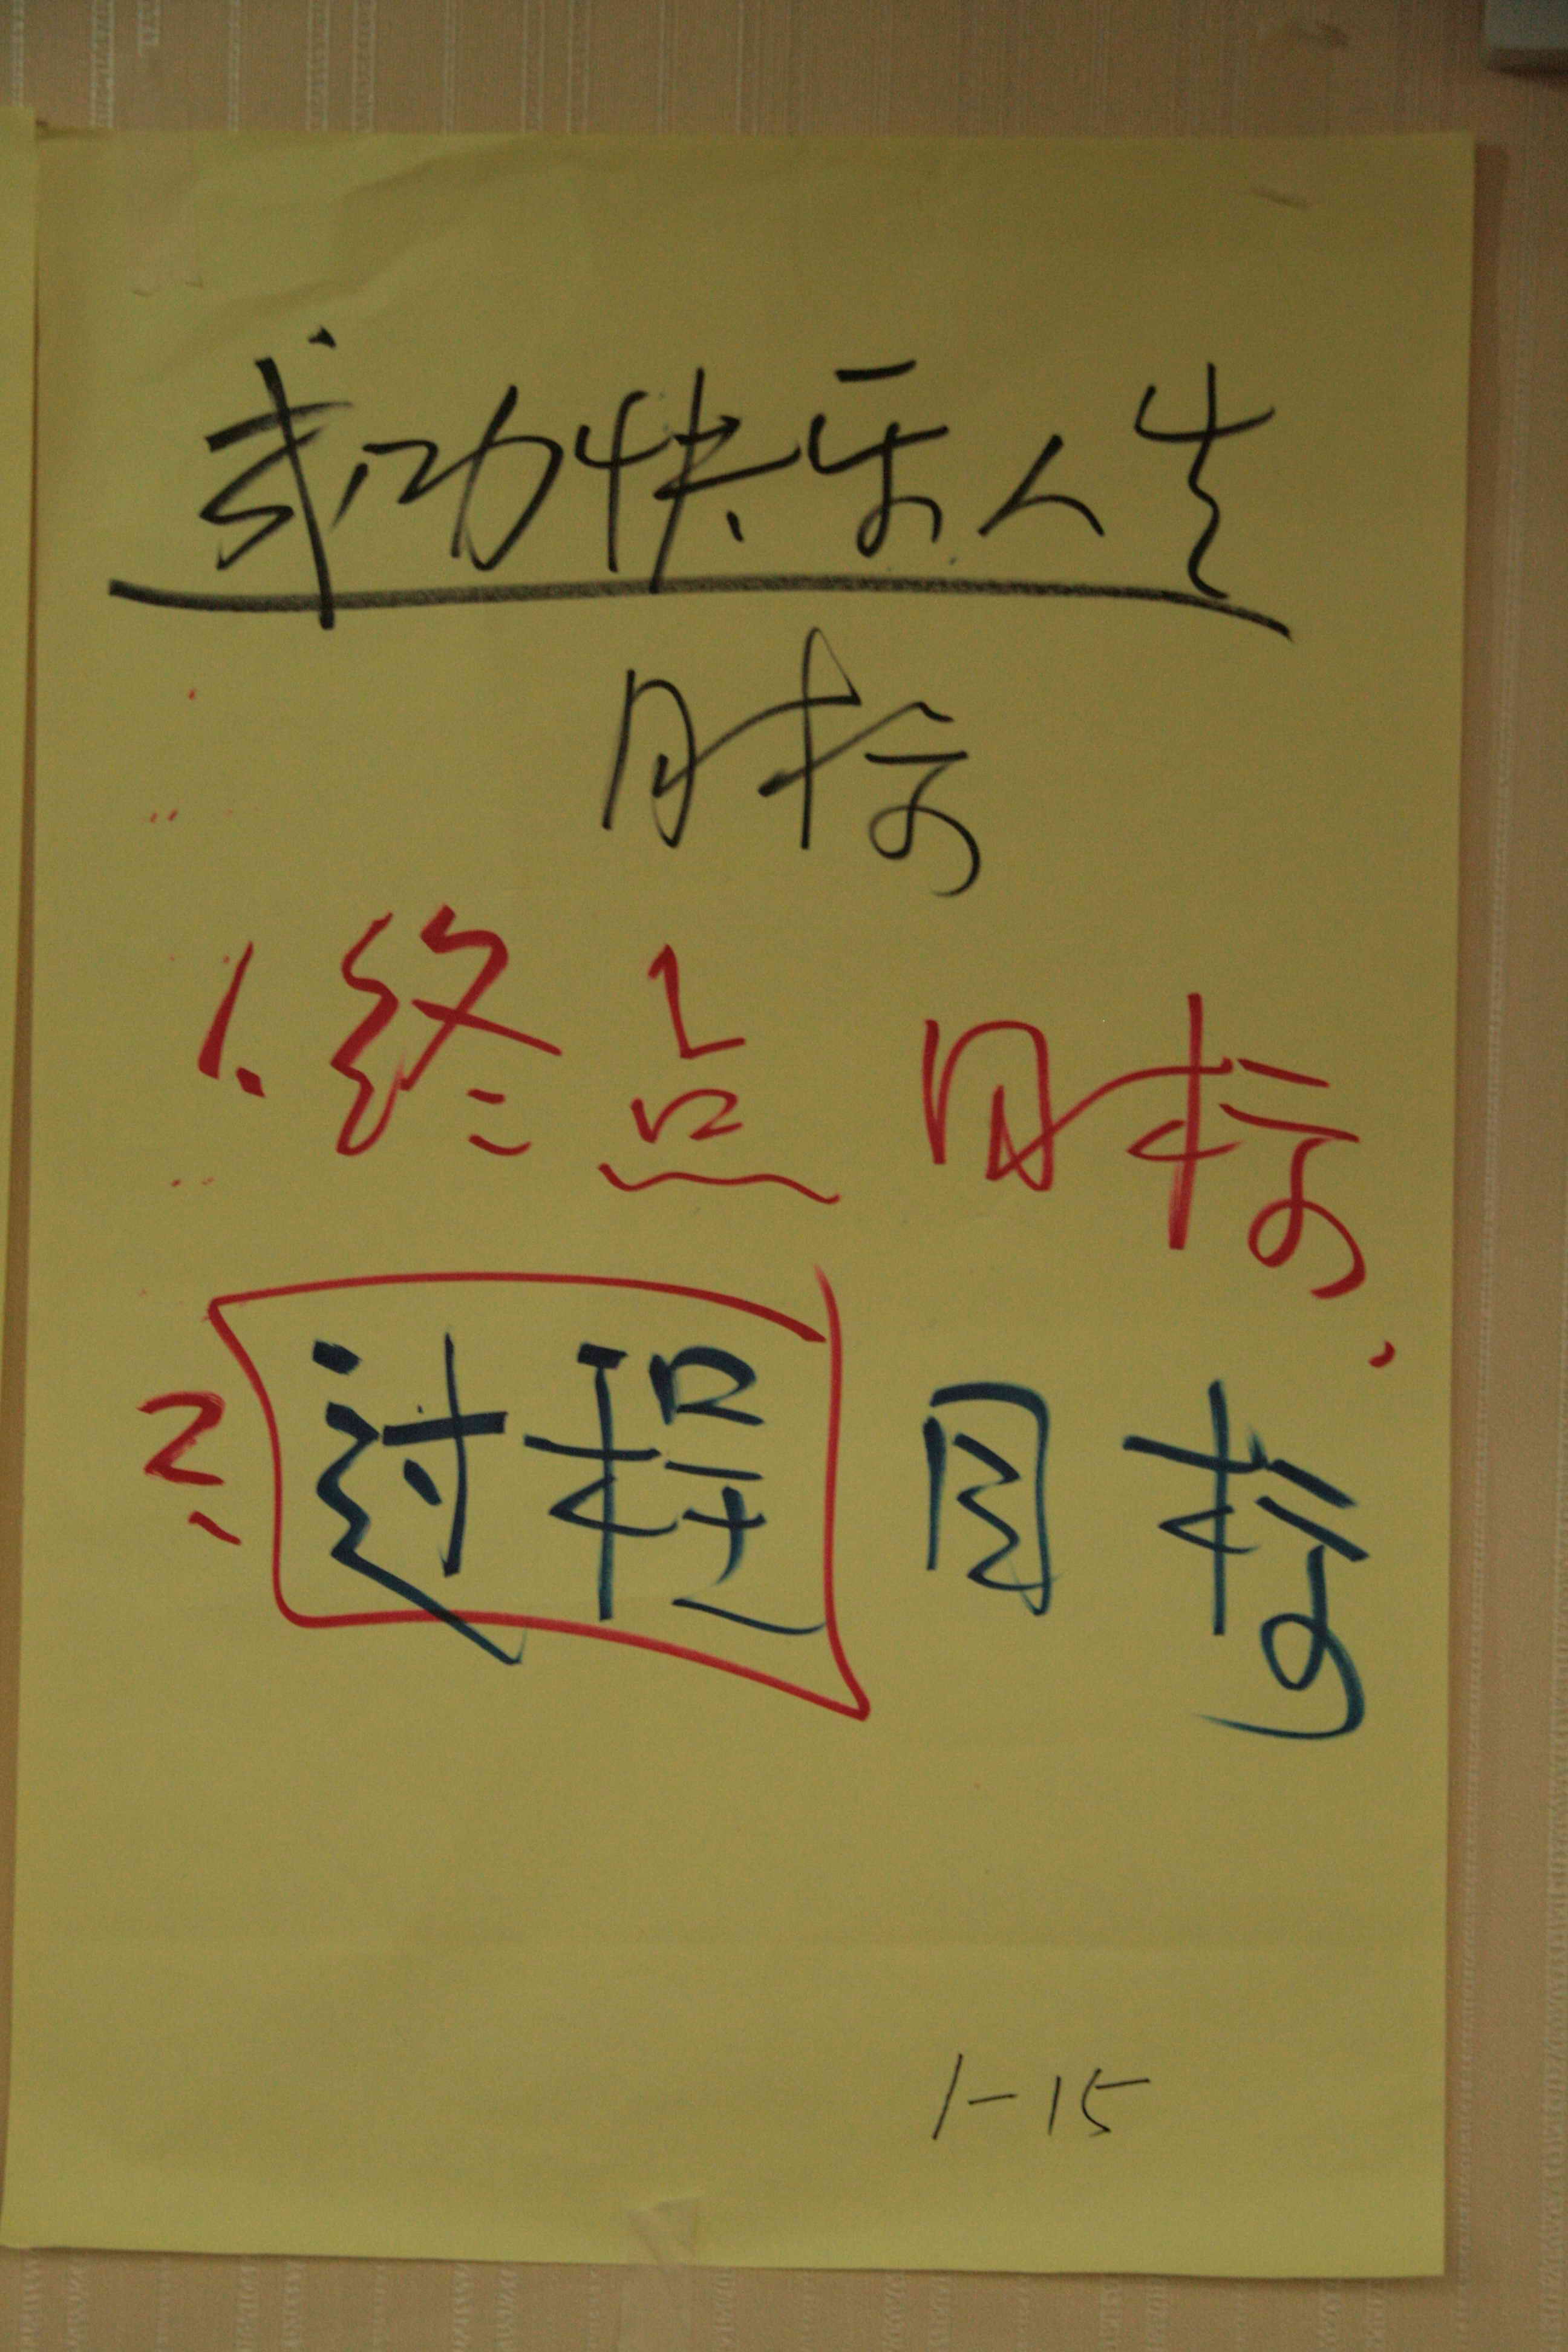 成功快乐人生
目标
1.终点 目标.
2、过程 目标
1-15